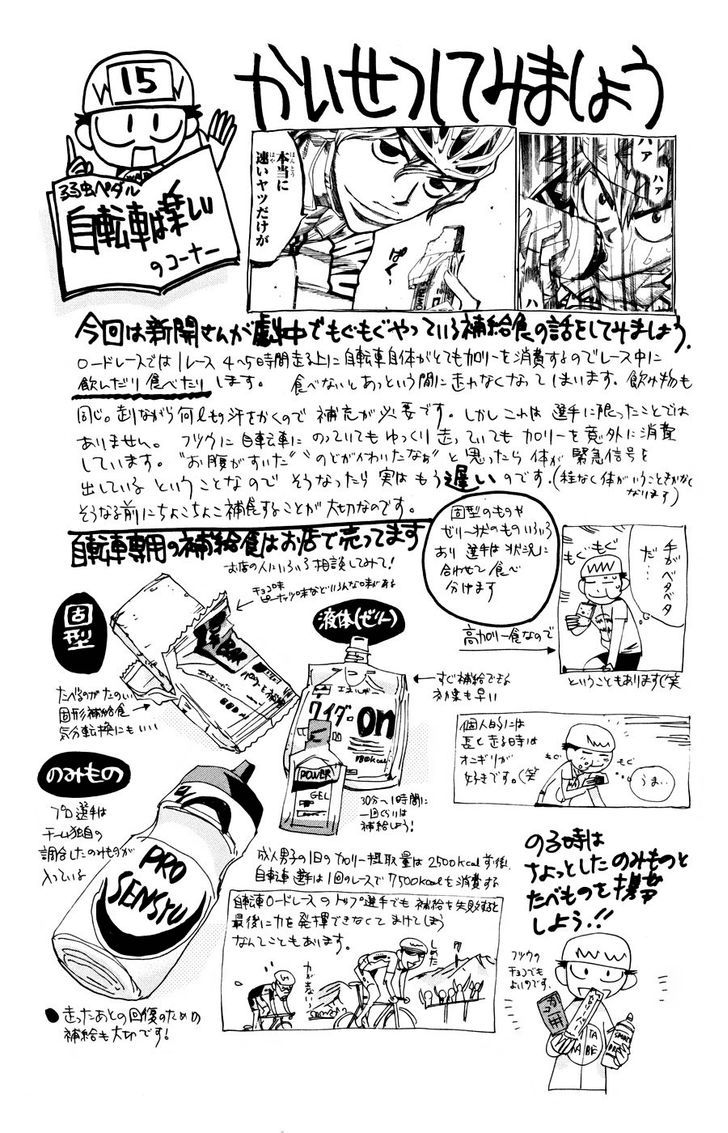 かいせつしてみましょう
15
弱虫ペダル
自転車は楽しい
のコーナー
本当に
速いヤツだけが
ぱく
ハァ
ハァ
ハァ
ハァ
今回は新開さんが劇中でもぐもぐやっている補給食の話をしてみましょう.
ロードレースでは1レース 4~5時間走る上に自転車自体がとてもカロリーを消費するのでレース中に
飲んだり食べたりします。 食べないとあっという間に走れなくなってしまいます。飲み物も
同じ。走りながら何ℓも汗をかくので 補充が必要です。しかしこれは 選手に限ったことでは
ありません。 フツウに自転車にのっていてもゆっくり走っていても カロリーを意外に消費
しています。"お腹がすいた""のどがかわいたなぁ"と思ったら体が緊急信号を
出しているということなのでそうなったら実はもう遅いのです。(程なく体がいうことをきかなくなります)
そうなる前にちょこちょこ補食することが大切なのです。
自転車専用の補給食はお店で売ってます
お店の人にいろいろ相談してみて!
固型のものや
ゼリー状のものいろいろ
あり 選手は状況に
合わせて食べ
分けます
高カロリー食なので
もぐもぐ
もぐ
手が
ベタベタ
だ…
ということもあります(笑
固型
チョコ味
ピーナッツ味などいろんな味がある
たべるのがたのしい
固形補給食
気分転換にもいい
液体(ゼリー)
エネルギー
ワイダー
on
180kcal
POWER
GEL
すぐ補給できる
効果も早い
30分~1時間に
一回くらいは
補給しよう!
個人的には
長く走る時は
オニギリが
好きです。(笑
もぐ
もぐ
うま…
のみもの
プロ選手は
チーム独自の
調合したのみものが
入っている
PRO
SENSYU
成人男子の1日のカロリー摂取量は2500kcal
自転車選手は1回のレースで7500kcalを消費する
自転車ロードレースのトップ選手でも補給を失敗すると
最後に力を発揮できなくてまけてしまう
なんてこともあります。
力がない!
しめた
のる時は
ちょっとしたのみものと
たべものを携帯
しよう!!
フツウの
チョコでも
よいのです。
TA
NABE
●走ったあとの回復のための
補給も大切です!